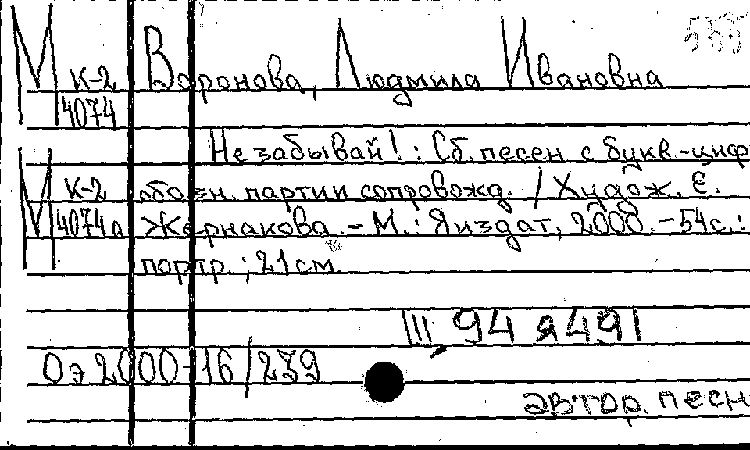 М К-2 Воронова, Людмила Ивановна
4074
Не забывай! : Сб. песен с букв.-цифр
М К-2 обозн. партии сопровожд. / Худож. Е.
4074а Жернакова. - М. : Яиздат, 2000. - 54с. :
портр. ; 21см.
III, 94 я491
Оэ 2000-16/239
автор. песн